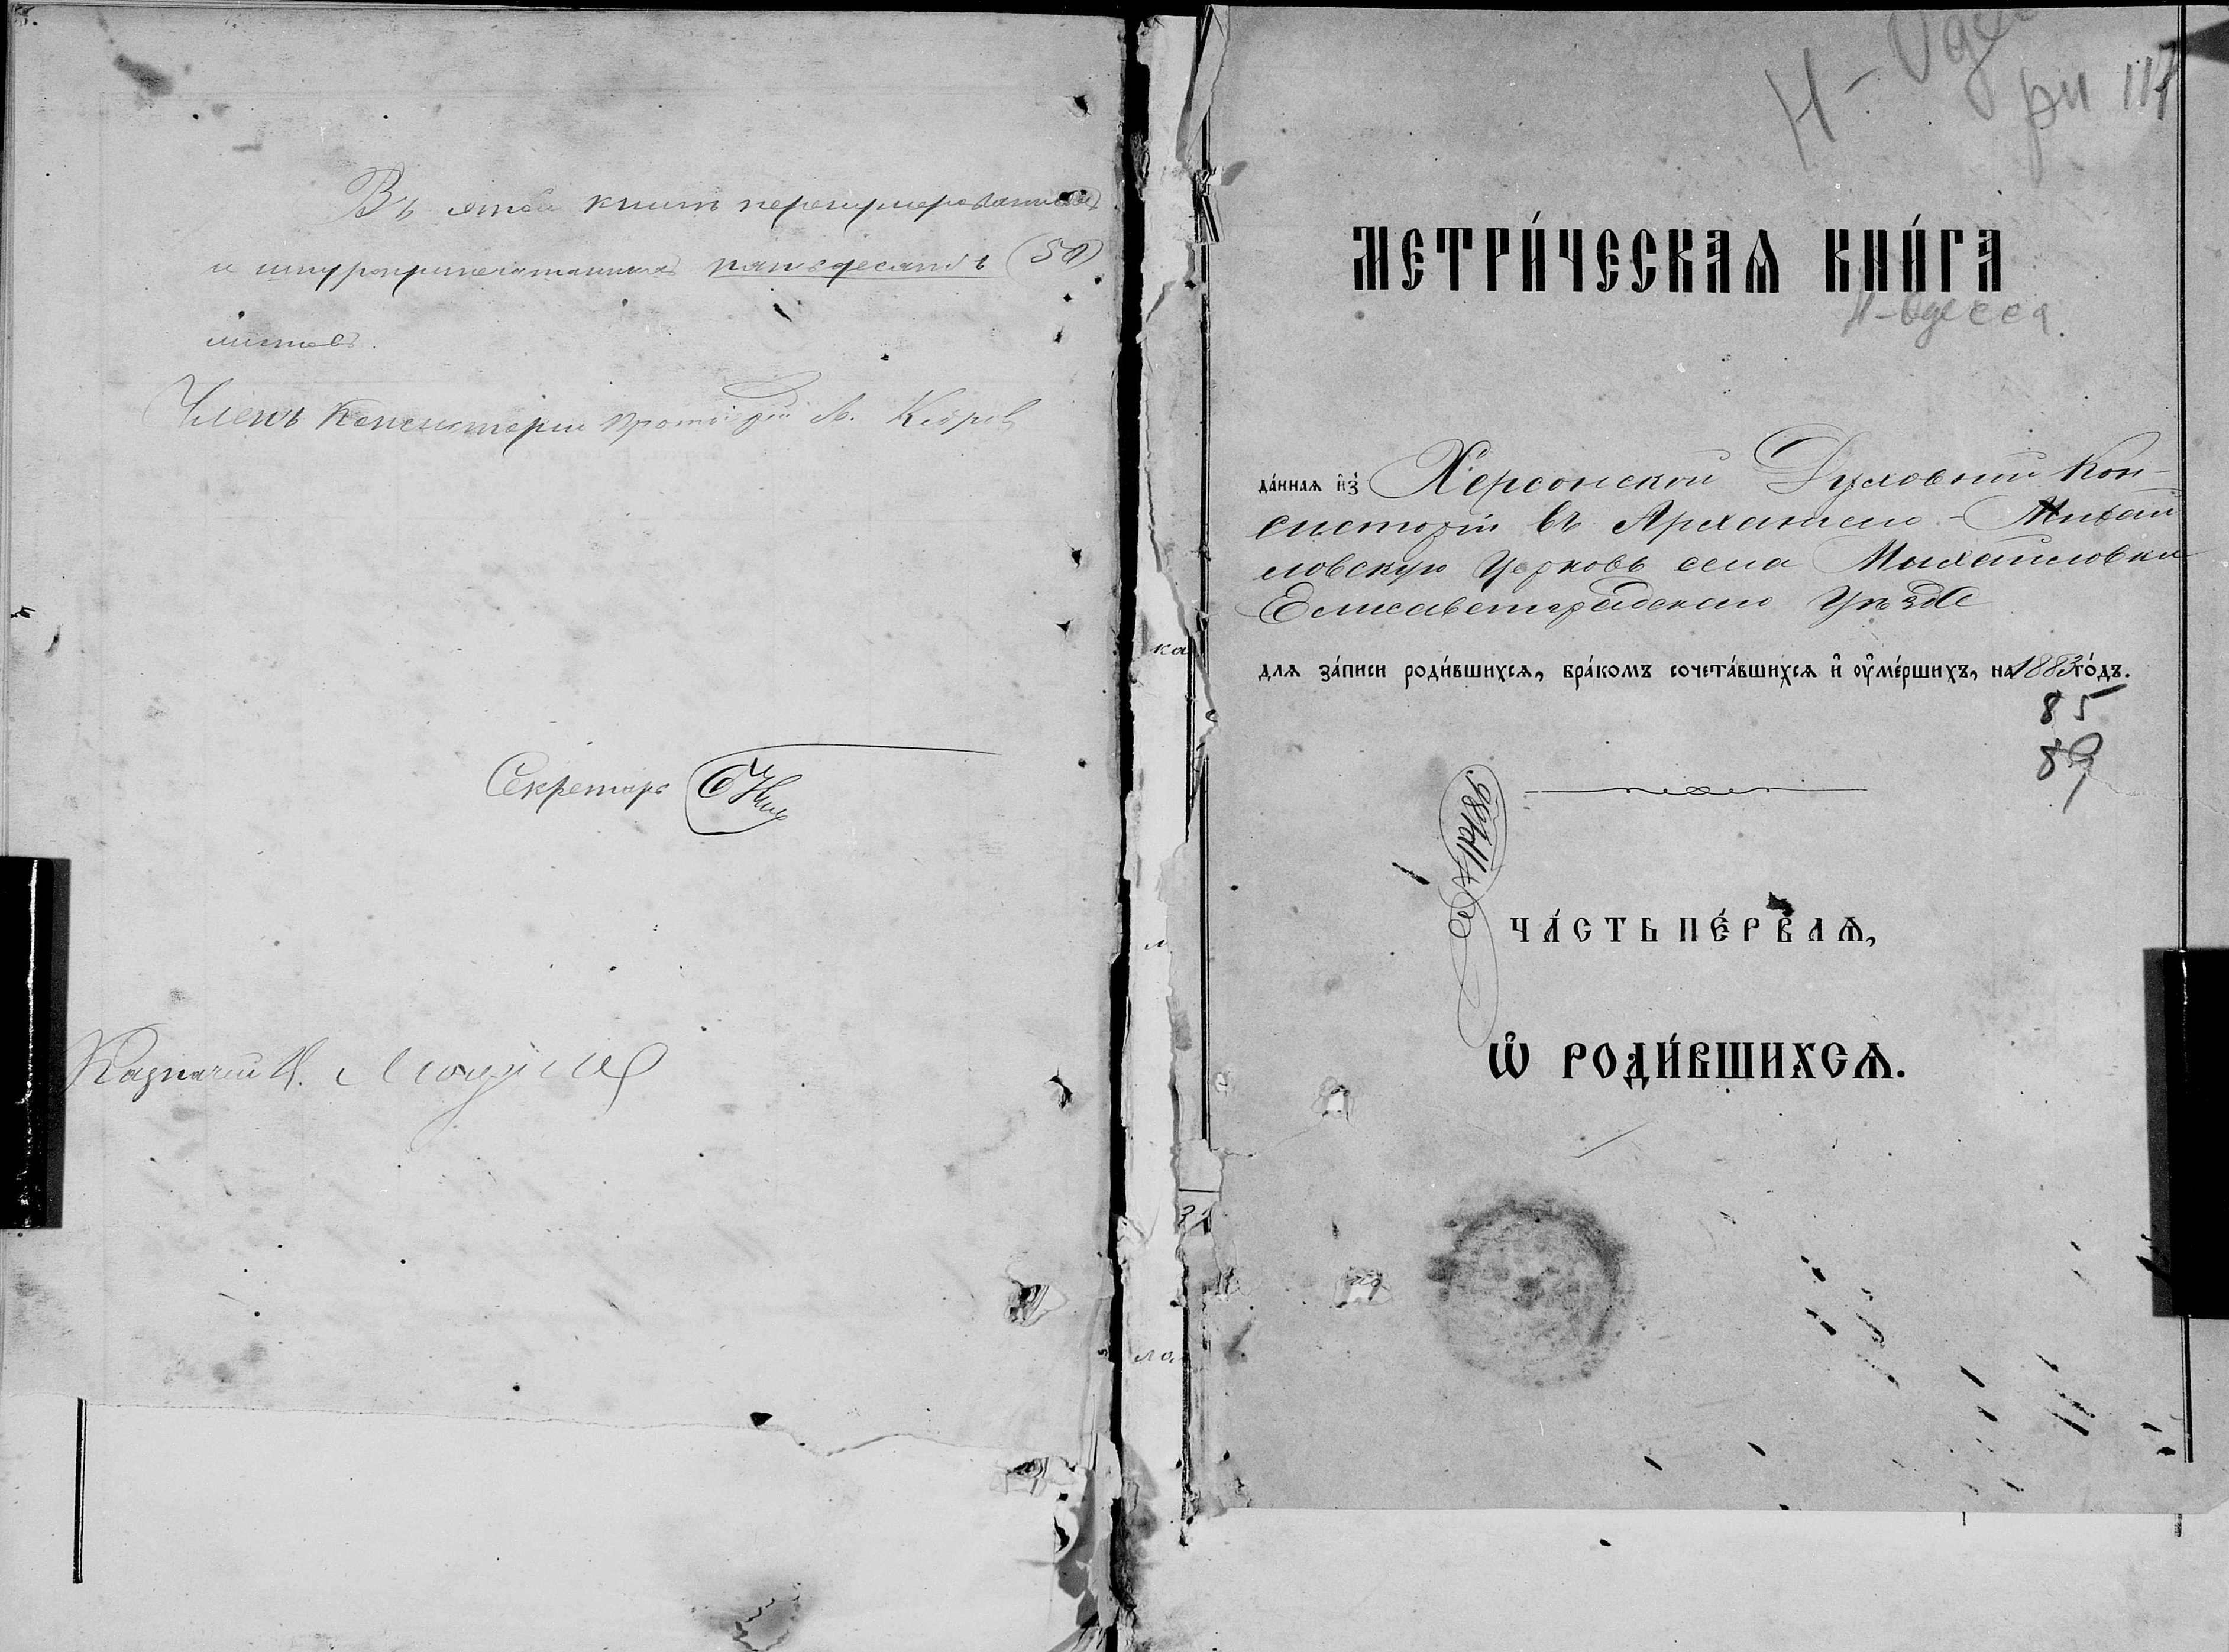 Въ этой книгѣ перенумерованныхъ
и шнуроприпечатанныхъ пятьдесятъ (50)
листовъ.
Членъ Консисторіи Протоіерей
Секретарь
Казначей
Н-Оде
рн 117
МЕТРИ́ЧЕСКАѦ КНИ́ГА
Н-Одесса.
да́ннаѧ и҆з̾ Херсонской Духовной Кон-
систоріи въ Архангело-Михай
ловскую Церковь села Михайловки
Елисаветградскаго Уѣзда
длѧ за́писи роди́вшихсѧ, бра́комъ сочета́вшихсѧ и҆ оу҆ме́ршихъ, на 1883 го́дъ.
85
89
ЧА́СТЬ ПЕ́РВАѦ,
Ѡ҆ РОДИ́ВШИХСѦ.